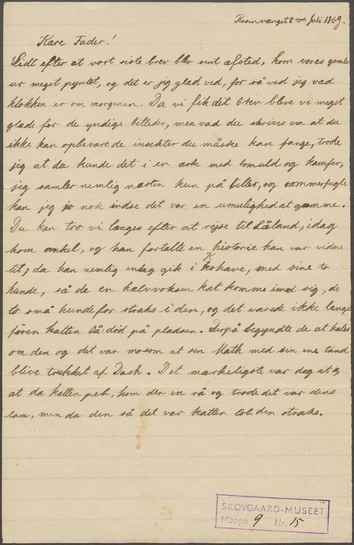 Kære Fader!
Lidt efter at vort siste brev blev sent afsted, kom vores
ur meget pyntet, og det er jeg glad ved, for så ved jeg vad
klokken er om morgenen. Da vi fik dit brev blev vi meget
glade for de yndige billeder, men vad du skriver om at du
ikke kan opbevare de insekter du måske kan fange, trode
jeg at du kunde det i en æske med bomuld og kamfer,
jeg samler nemlig næsten kun på biller, og sommerfugle
kan jeg jo nok indse det var en umulighed at gemme.
Du kan tro vi længes efter at rejse til Låland, idag
kom onkel, og han fortalte en historie han var vidne
til, da han nemlig idag gik i have, med sine to
hunde, så de en halvvoksen kat komme imod sig, de
to små hunde for straks i den, og det varede ikke længe
føren katten lå død på pladsen. Derpå begyndte de at hale
om den og det var morsomt at se Math med sin ene tand
blive trukket af Dash. Det mærkeligste var dog at
at da katten peb, kom der en rå og trode det var dens
lam, men da den så det var katten lob den straks.
SKOVGAARD-MUSEET
Mappe 9 Nr. 15